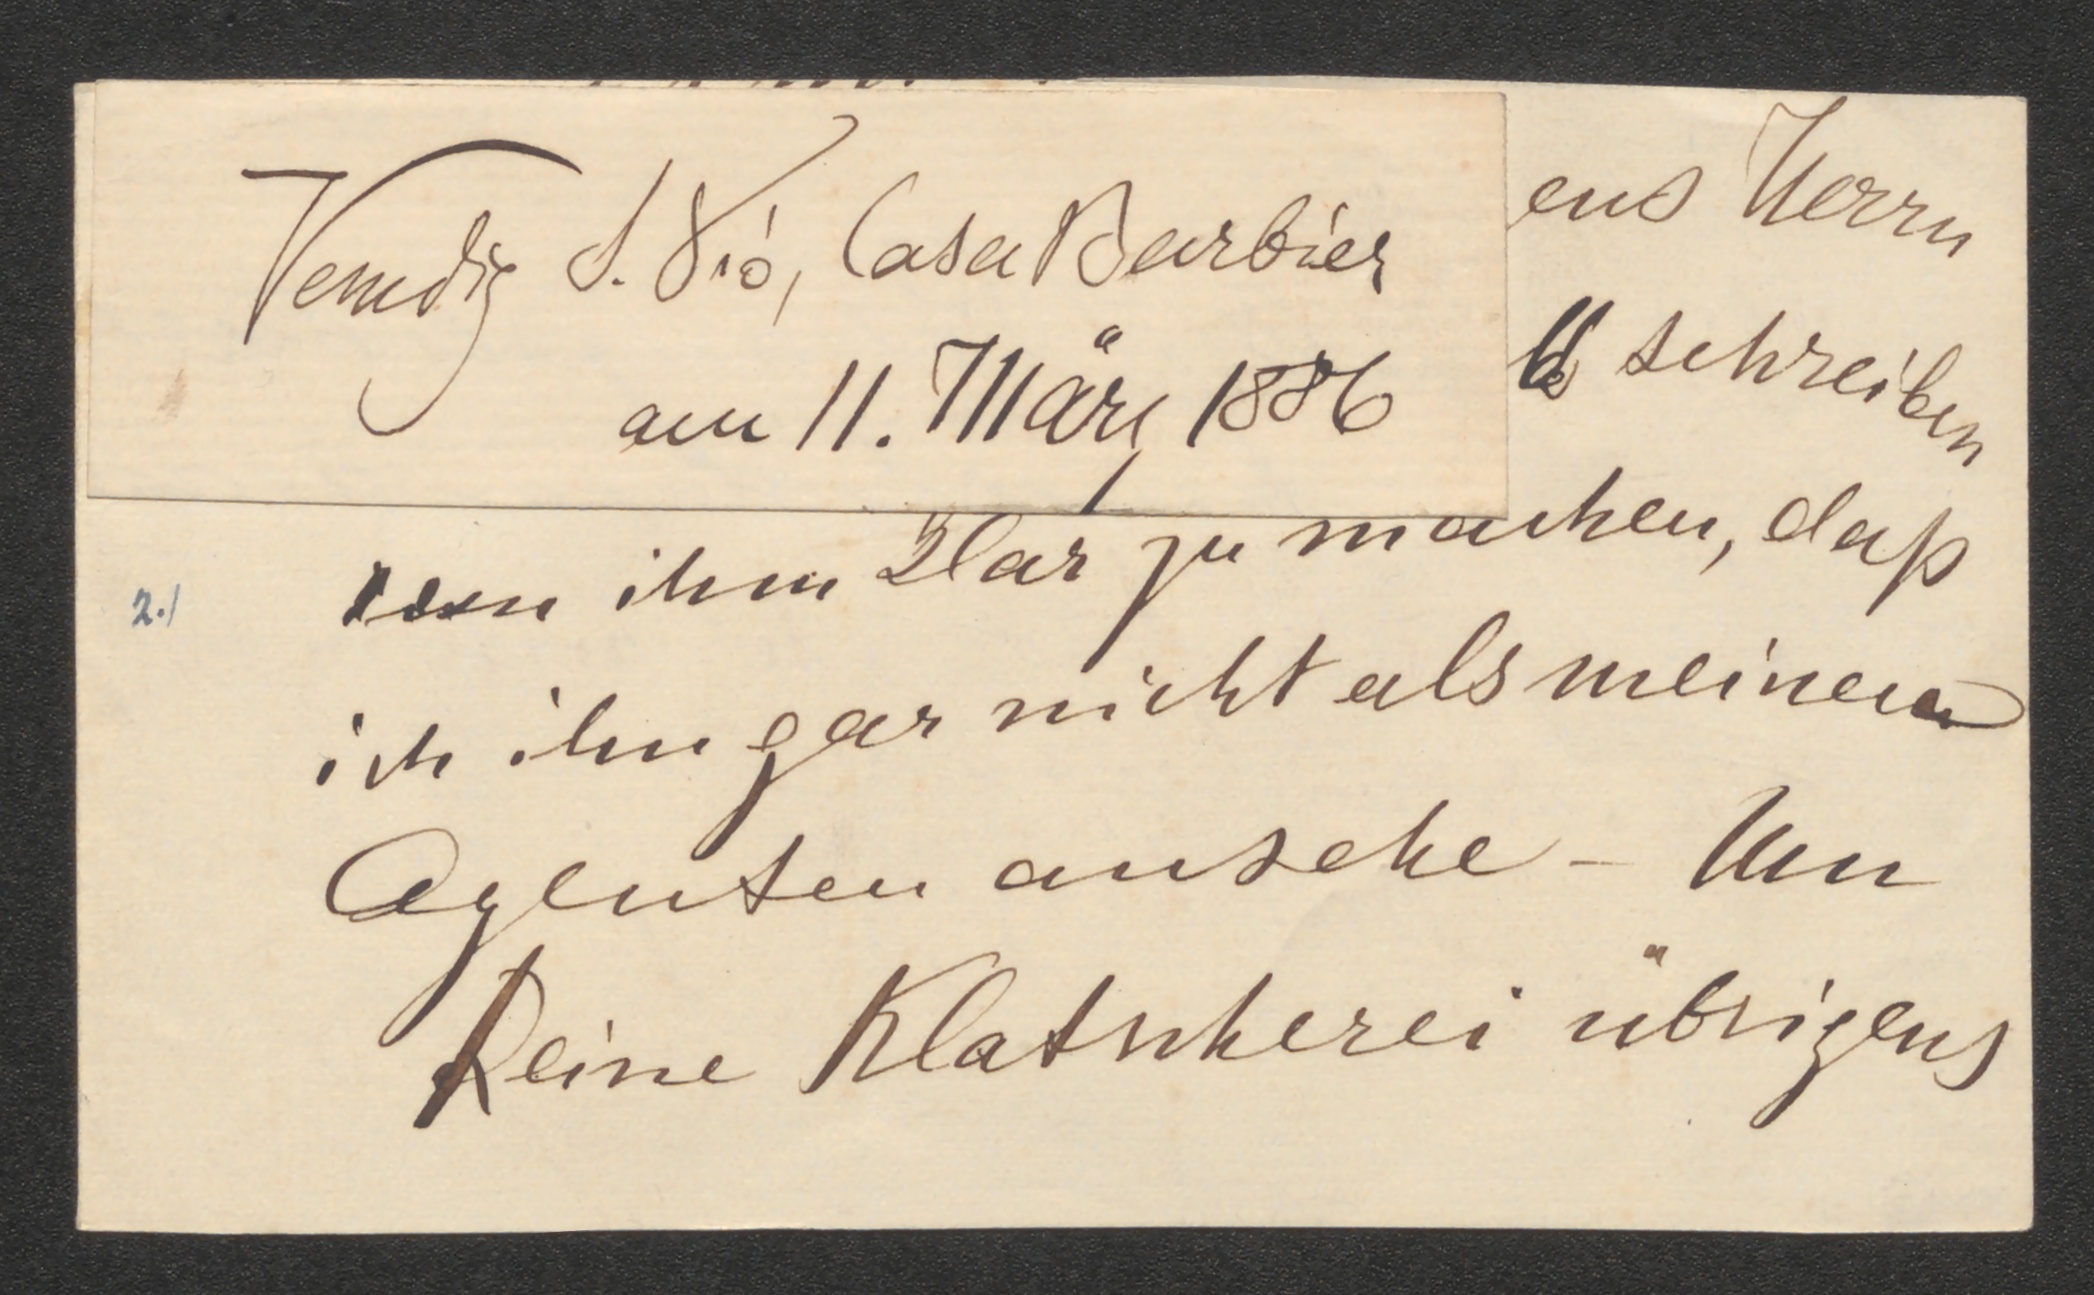 Venedig S. Vió, Casa Barbier
am 11. März 1886
ens Herrn
schreiben
2.)
um ihm klar zu machen, daß
ich ihn gar nicht als meinen
Agenten ansehe – Um
keine Klatscherei übrigens